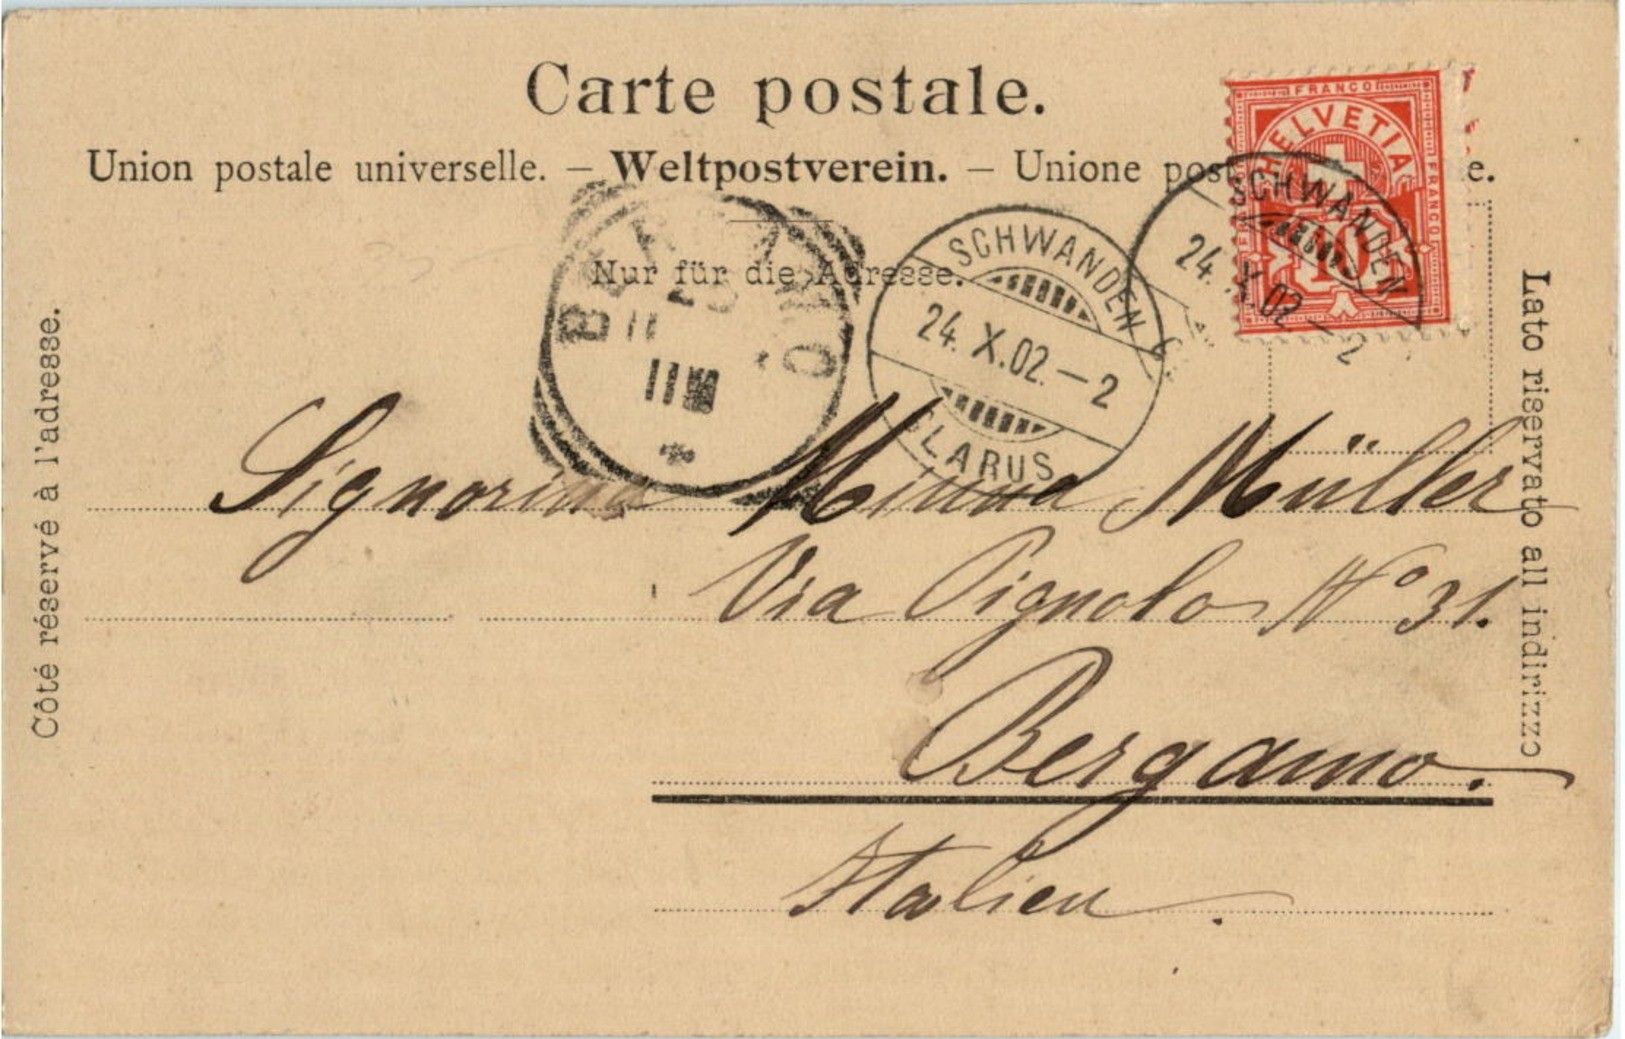 Carte postale.
Union postale universelle. – Weltpostverein. – Unione post e.
Nur für die Adresse.
Côté réservé à l'adresse.
Lato riservato all indirizzo
FRANCO
HELVETIA
FRANCO
10
SCHWANDEN
24. X. 02 – 2
SCHWANDEN
24. X. 02. – 2
GLARUS
BERGAMO
Signorina Minna Müller
Via Pignolo No 31.
Bergamo.
Italien.